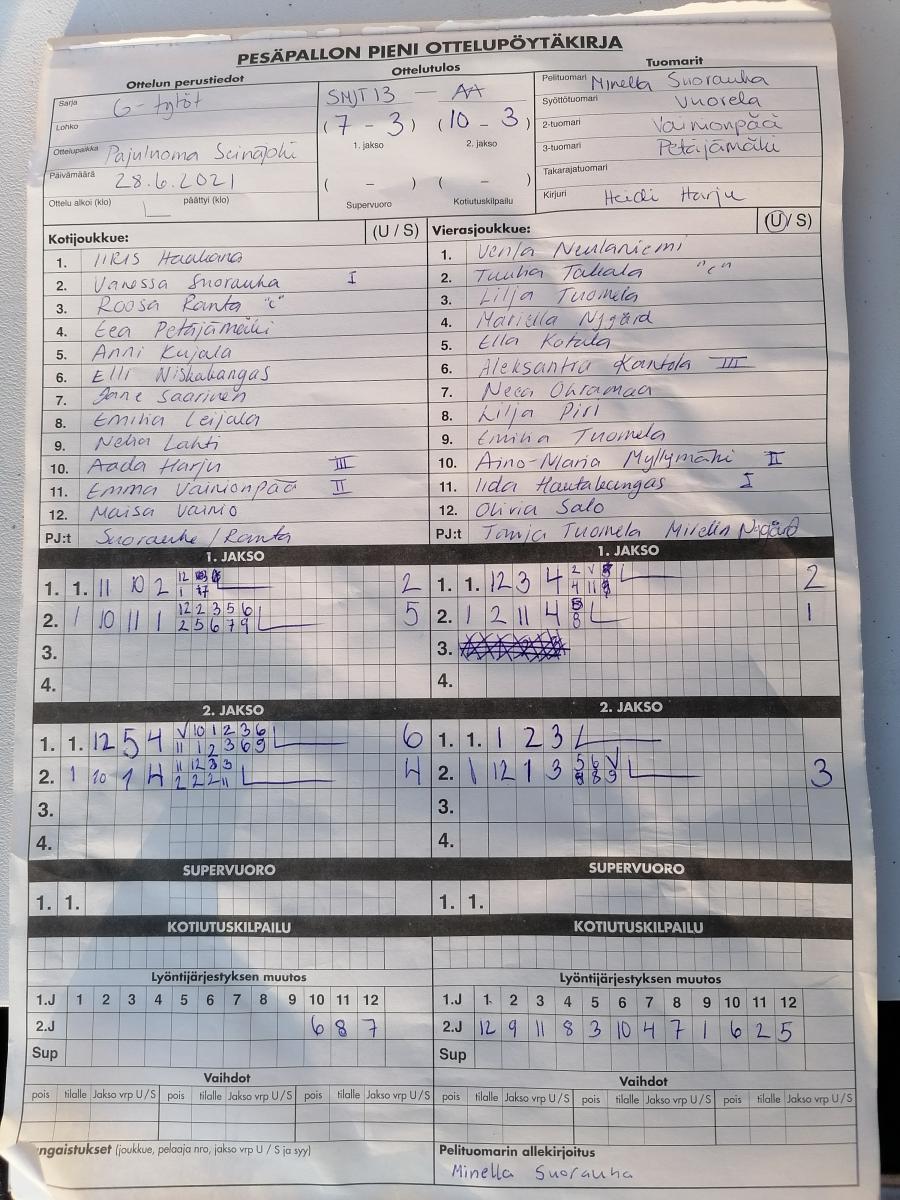 PESÄPALLON PIENI OTTELUPÖYTÄKIRJA
Ottelun perustiedot
Sarja G-tytöt
Lohko
Ottelupaikka Pajuluoma Seinäjoki
Päivämäärä 28.6.2021
Ottelu alkoi (klo) päättyi (klo)
Ottelutulos
SMJT13 - AA
(7 - 3) (10 - 3)
1. jakso 2. jakso
( - ) ( - )
Supervuoro Kotiutuskilpailu
Tuomarit
Pelituomari Minella Suorauha
Syöttötuomari Vuorela
2-tuomari Vainionpää
3-tuomari Petäjämäki
Takarajatuomari
Kirjuri Heidi Harju
Kotijoukkue: (U / S)
1. IIRIS Haukana
2. Vanessa Suorauha I
3. Roosa Ranta "c"
4. Eea Petäjämäki
5. Anni Kujala
6. Elli Niskakangas
7. Jane Saarinen
8. Emilia Leijala
9. Nelia Lahti
10. Aada Harju III
11. Emma Vainionpää II
12. Maisa Vainio
PJ:t Suorauha / Ranta
Vierasjoukkue: (U / S)
1. Venla Neulaniemi
2. Tuuha Takala "c"
3. Lilja Tuomela
4. Mariella Nygård
5. Ella Kotala
6. Aleksantra Kantola III
7. Neea Ohramaa
8. Lilja Piri
9. Emilia Tuomela
10. Aino-Maria Myllymäki II
11. Iida Hautakangas I
12. Olivia Salo
PJ:t Tanja Tuomela Mirelin Nygård
1. JAKSO
1. 1. 11 10 2 2
2. 1 10 11 1 12 2 3 5 6 5
2 5 6 7 9
3.
4.
1. JAKSO
1. 1. 12 3 4 2
2. 1 2 11 4 1
3.
4.
2. JAKSO
1. 1. 12 5 4 V 10 1 2 3 6 6
11 1 2 3 6 9
2. 1 10 1 4 11 12 3 3 4
2 2 2 11
3.
4.
2. JAKSO
1. 1. 1 2 3
2. 1 12 1 3 5 6 V 3
8 8 9
3.
4.
SUPERVUORO
1. 1.
SUPERVUORO
1. 1.
KOTIUTUSKILPAILU
KOTIUTUSKILPAILU
Lyöntijärjestyksen muutos
1.J 1 2 3 4 5 6 7 8 9 10 11 12
2.J 6 8 7
Sup
Lyöntijärjestyksen muutos
1.J 1 2 3 4 5 6 7 8 9 10 11 12
2.J 12 9 11 8 3 10 4 7 1 6 2 5
Sup
Vaihdot
pois tilalle Jakso vrp U / S pois tilalle Jakso vrp U / S pois tilalle Jakso vrp U / S
Vaihdot
pois tilalle Jakso vrp U / S pois tilalle Jakso vrp U / S pois tilalle Jakso vrp U / S
ngaistukset (joukkue, pelaaja nro, jakso vrp U / S ja syy)
Pelituomarin allekirjoitus
Minella Suorauha